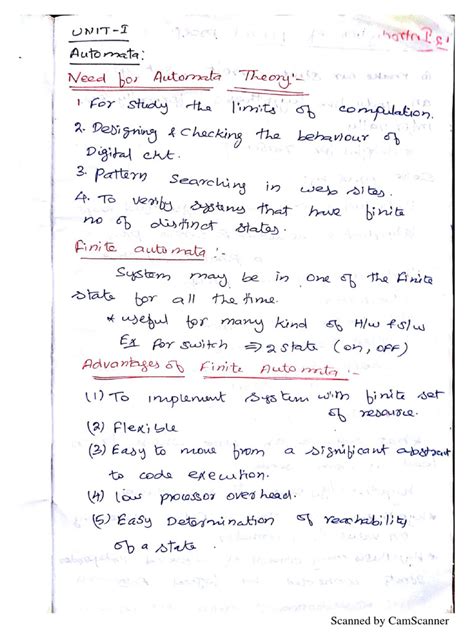 UNIT-I
Automata:
Need for Automata Theory:-
1 For study the limits of computation.
2. Designing & Checking the behaviour of
Digital ckt.
3. Pattern Searching in web sites.
4. To verify systems that have finite
no of distinct states.
Finite automata :-
System may be in one of the finite
state for all the time.
* useful for many kind of H/w & S/w
Ex for switch ⇒ 2 state (on, OFF)
Advantages of Finite Automata :-
(1) To implement system with finite set
of resource.
(2) Flexible
(3) Easy to move from a significant abstract
to code execution.
(4) low processor over head.
(5) Easy Determination of reachability
of a state.
Scanned by CamScanner